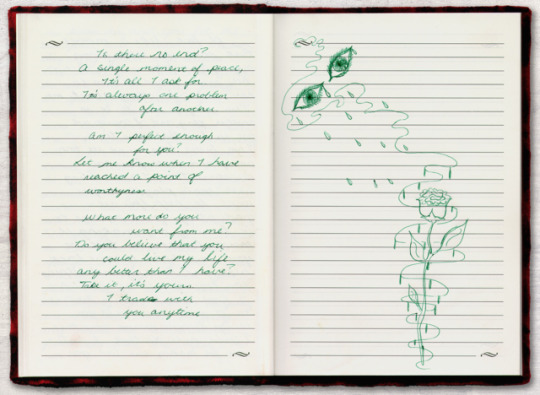 Is there no end?
A single moment of peace,
It's all I ask for
It's always one problem
after another
Am I perfect enough
for you?
Let me know when I have
reached a point of
worthyness
What more do you
want from me?
Do you believe that you
could live my life
any better than I have?
Take it, it's yours
I trade with
you anytime